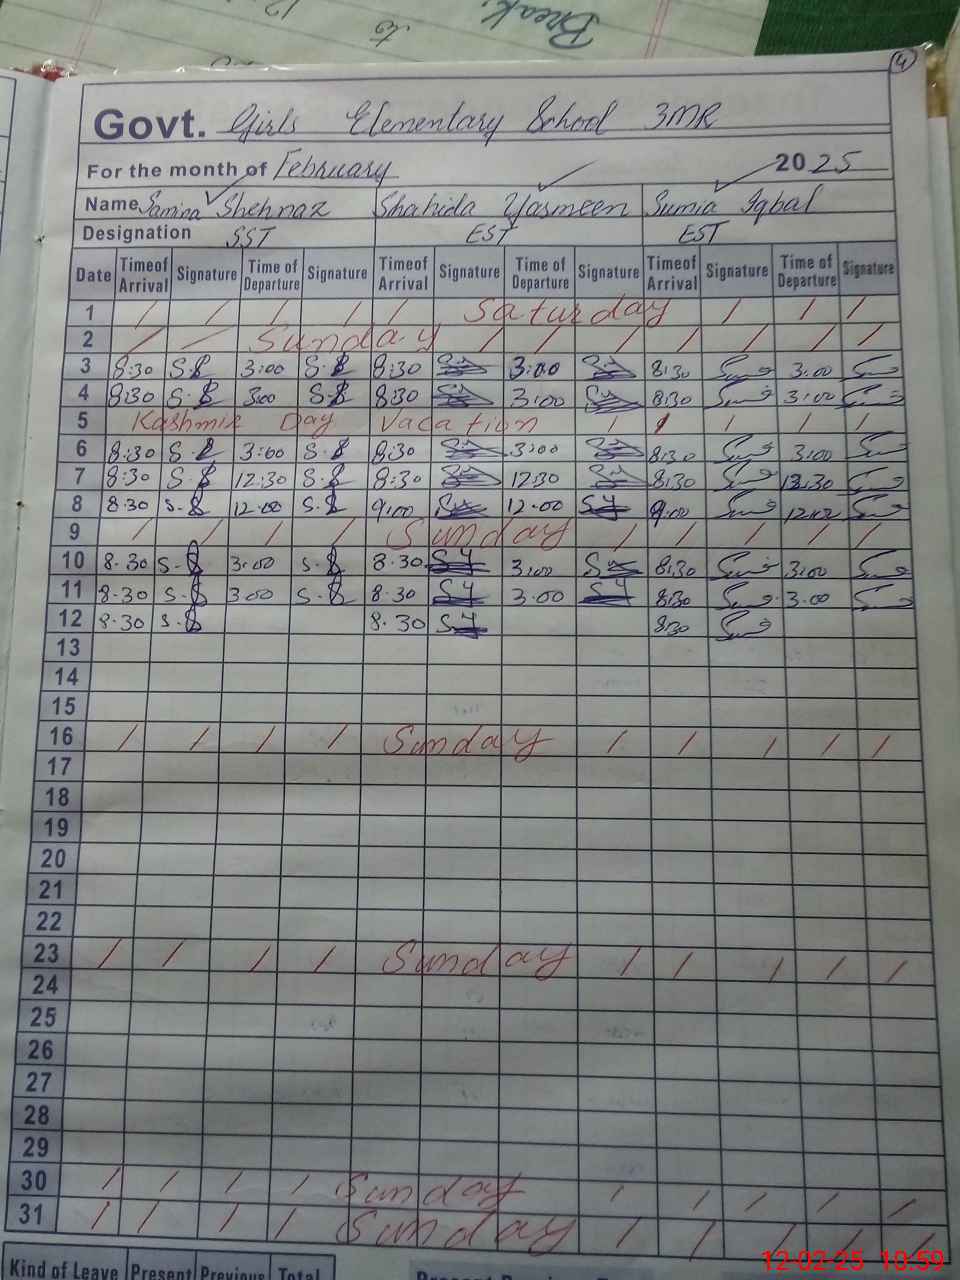 Break.
to
4
Govt. Girls Elementary School 3MR
For the month of February 2025
Name Samina Shehnaz Shahida Yasmeen Sumia Iqbal
Designation SST EST EST
Date Timeof Arrival Signature Time of Departure Signature Timeof Arrival Signature Time of Departure Signature Timeof Arrival Signature Time of Departure Signature
1 Saturday
2 Sunday
3 8:30 S.S 3:00 S.S 8:30 3:00 8:30 3:00
4 8:30 S.S 3:00 S.S 8:30 3:00 8:30 3:00
5 Kashmir Day Vacation
6 8:30 S.S 3:00 S.S 8:30 3:00 8:30 3:00
7 8:30 S.S 12:30 S.S 8:30 12:30 8:30 12:30
8 8:30 S.S 12:00 S.S 9:00 12:00 S.Y 9:00 12:00
9 Sunday
10 8.30 S.S 3.00 S.S 8.30 S.Y 3:00 8:30 3:00
11 8.30 S.S 3.00 S.S 8.30 S.Y 3.00 S.Y 8:30 3.00
12 8.30 S.S 8.30 S.Y 8:30
13
14
15
16 Sunday
17
18
19
20
21
22
23 Sunday
24
25
26
27
28
29
30 Sunday
31 Sunday
Kind of Leave Present Previous Total
12-02-25 10:59